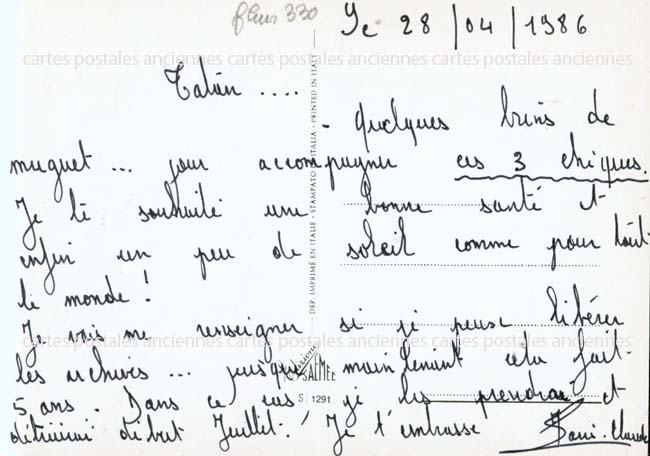 fleur 330
Le 28/04/1986
cartes postales anciennes cartes postales anciennes cartes postales anciennes
....
- Quelques brins de
muguet... pour accompagner ces 3 chèques.
Je te souhaite une bonne santé et
enfin un peu de soleil comme pour tout
le monde !
Je vais me renseigner si je peux libérer
cartes postales anciennes cartes postales anciennes cartes postales anciennes
les archives... puisque maintenant cela fait
5 ans. Dans ce cas je les prendrai et
début Juillet. Je t'embrasse
DEP. IMPRIMÉ EN ITALIE - STAMPATO IN ITALIA - PRINTED IN ITALY
SAEMEC
S 1291